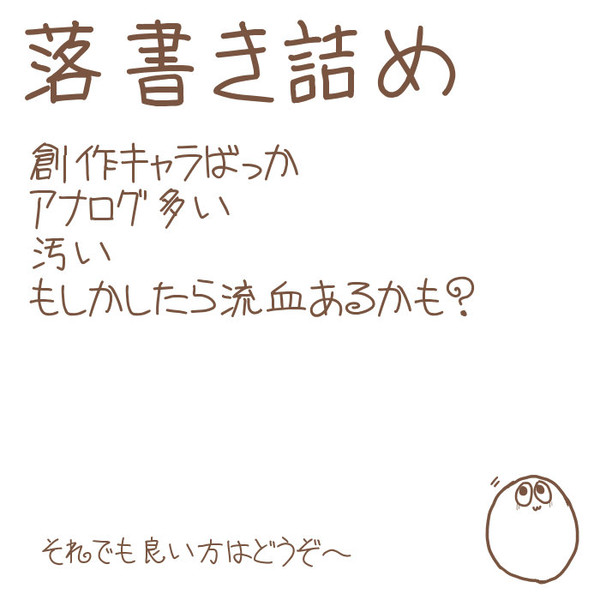 落書き詰め
創作キャラばっか
アナログ多い
汚い
もしかしたら流血あるかも?
それでも良い方はどうぞ〜